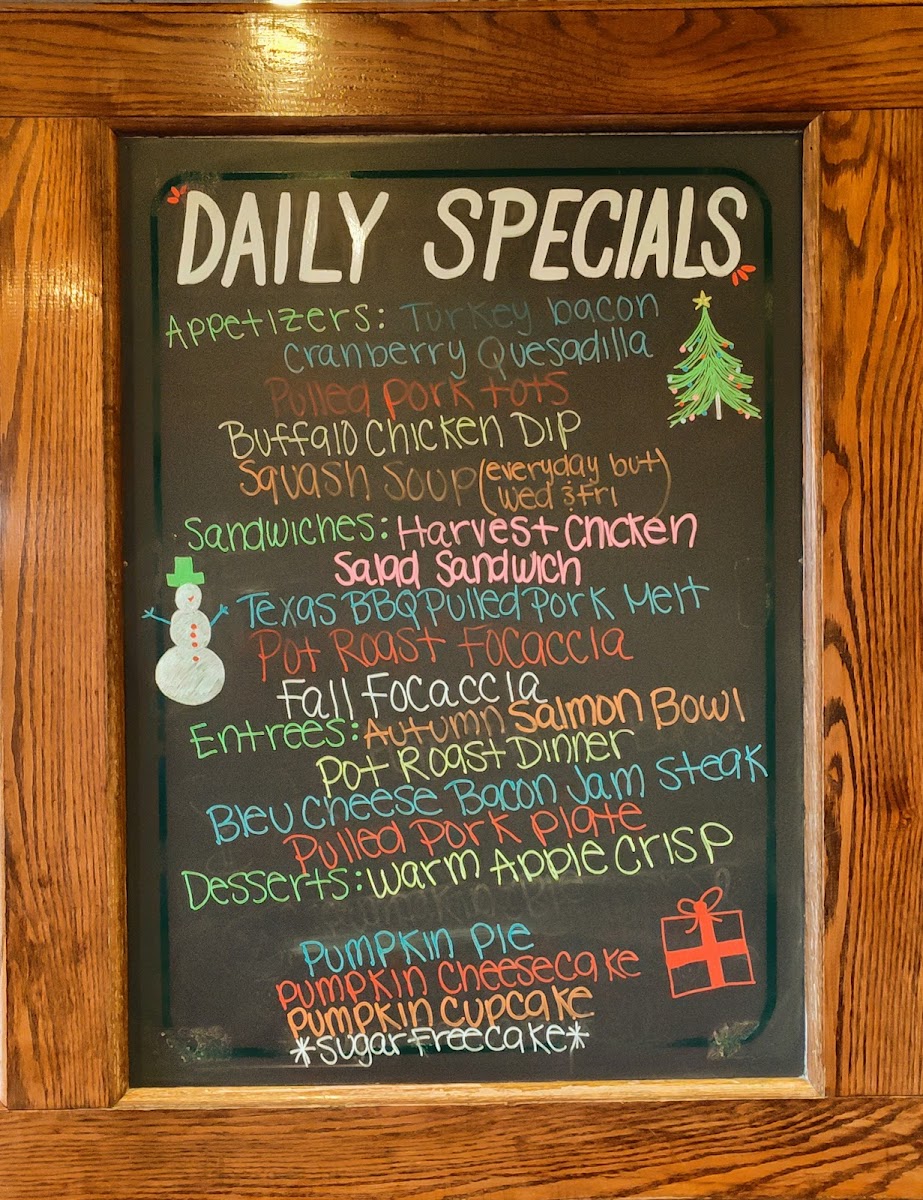 DAILY SPECIALS
Appetizers: Turkey bacon
cranberry Quesadilla
Pulled pork tots
Buffalo Chicken Dip
Squash Soup (everyday but
wed & Fri)
Sandwiches: Harvest Chicken
Salad Sandwich
Texas BBQ Pulled Pork Melt
Pot Roast Focaccia
Fall Focaccia
Entrees: Autumn Salmon Bowl
Pot Roast Dinner
Bleu Cheese Bacon Jam Steak
Pulled Pork Plate
Desserts: Warm Apple Crisp
Pumpkin Pie
Pumpkin Cheesecake
Pumpkin Cupcake
*sugar Free Cake*